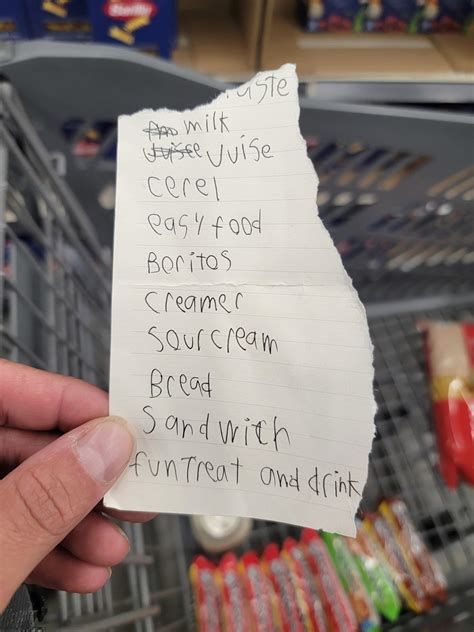 milk
Juise
cerel
easy food
Boritos
creamer
Sour cream
Bread
Sandwich
fun Treat and drink